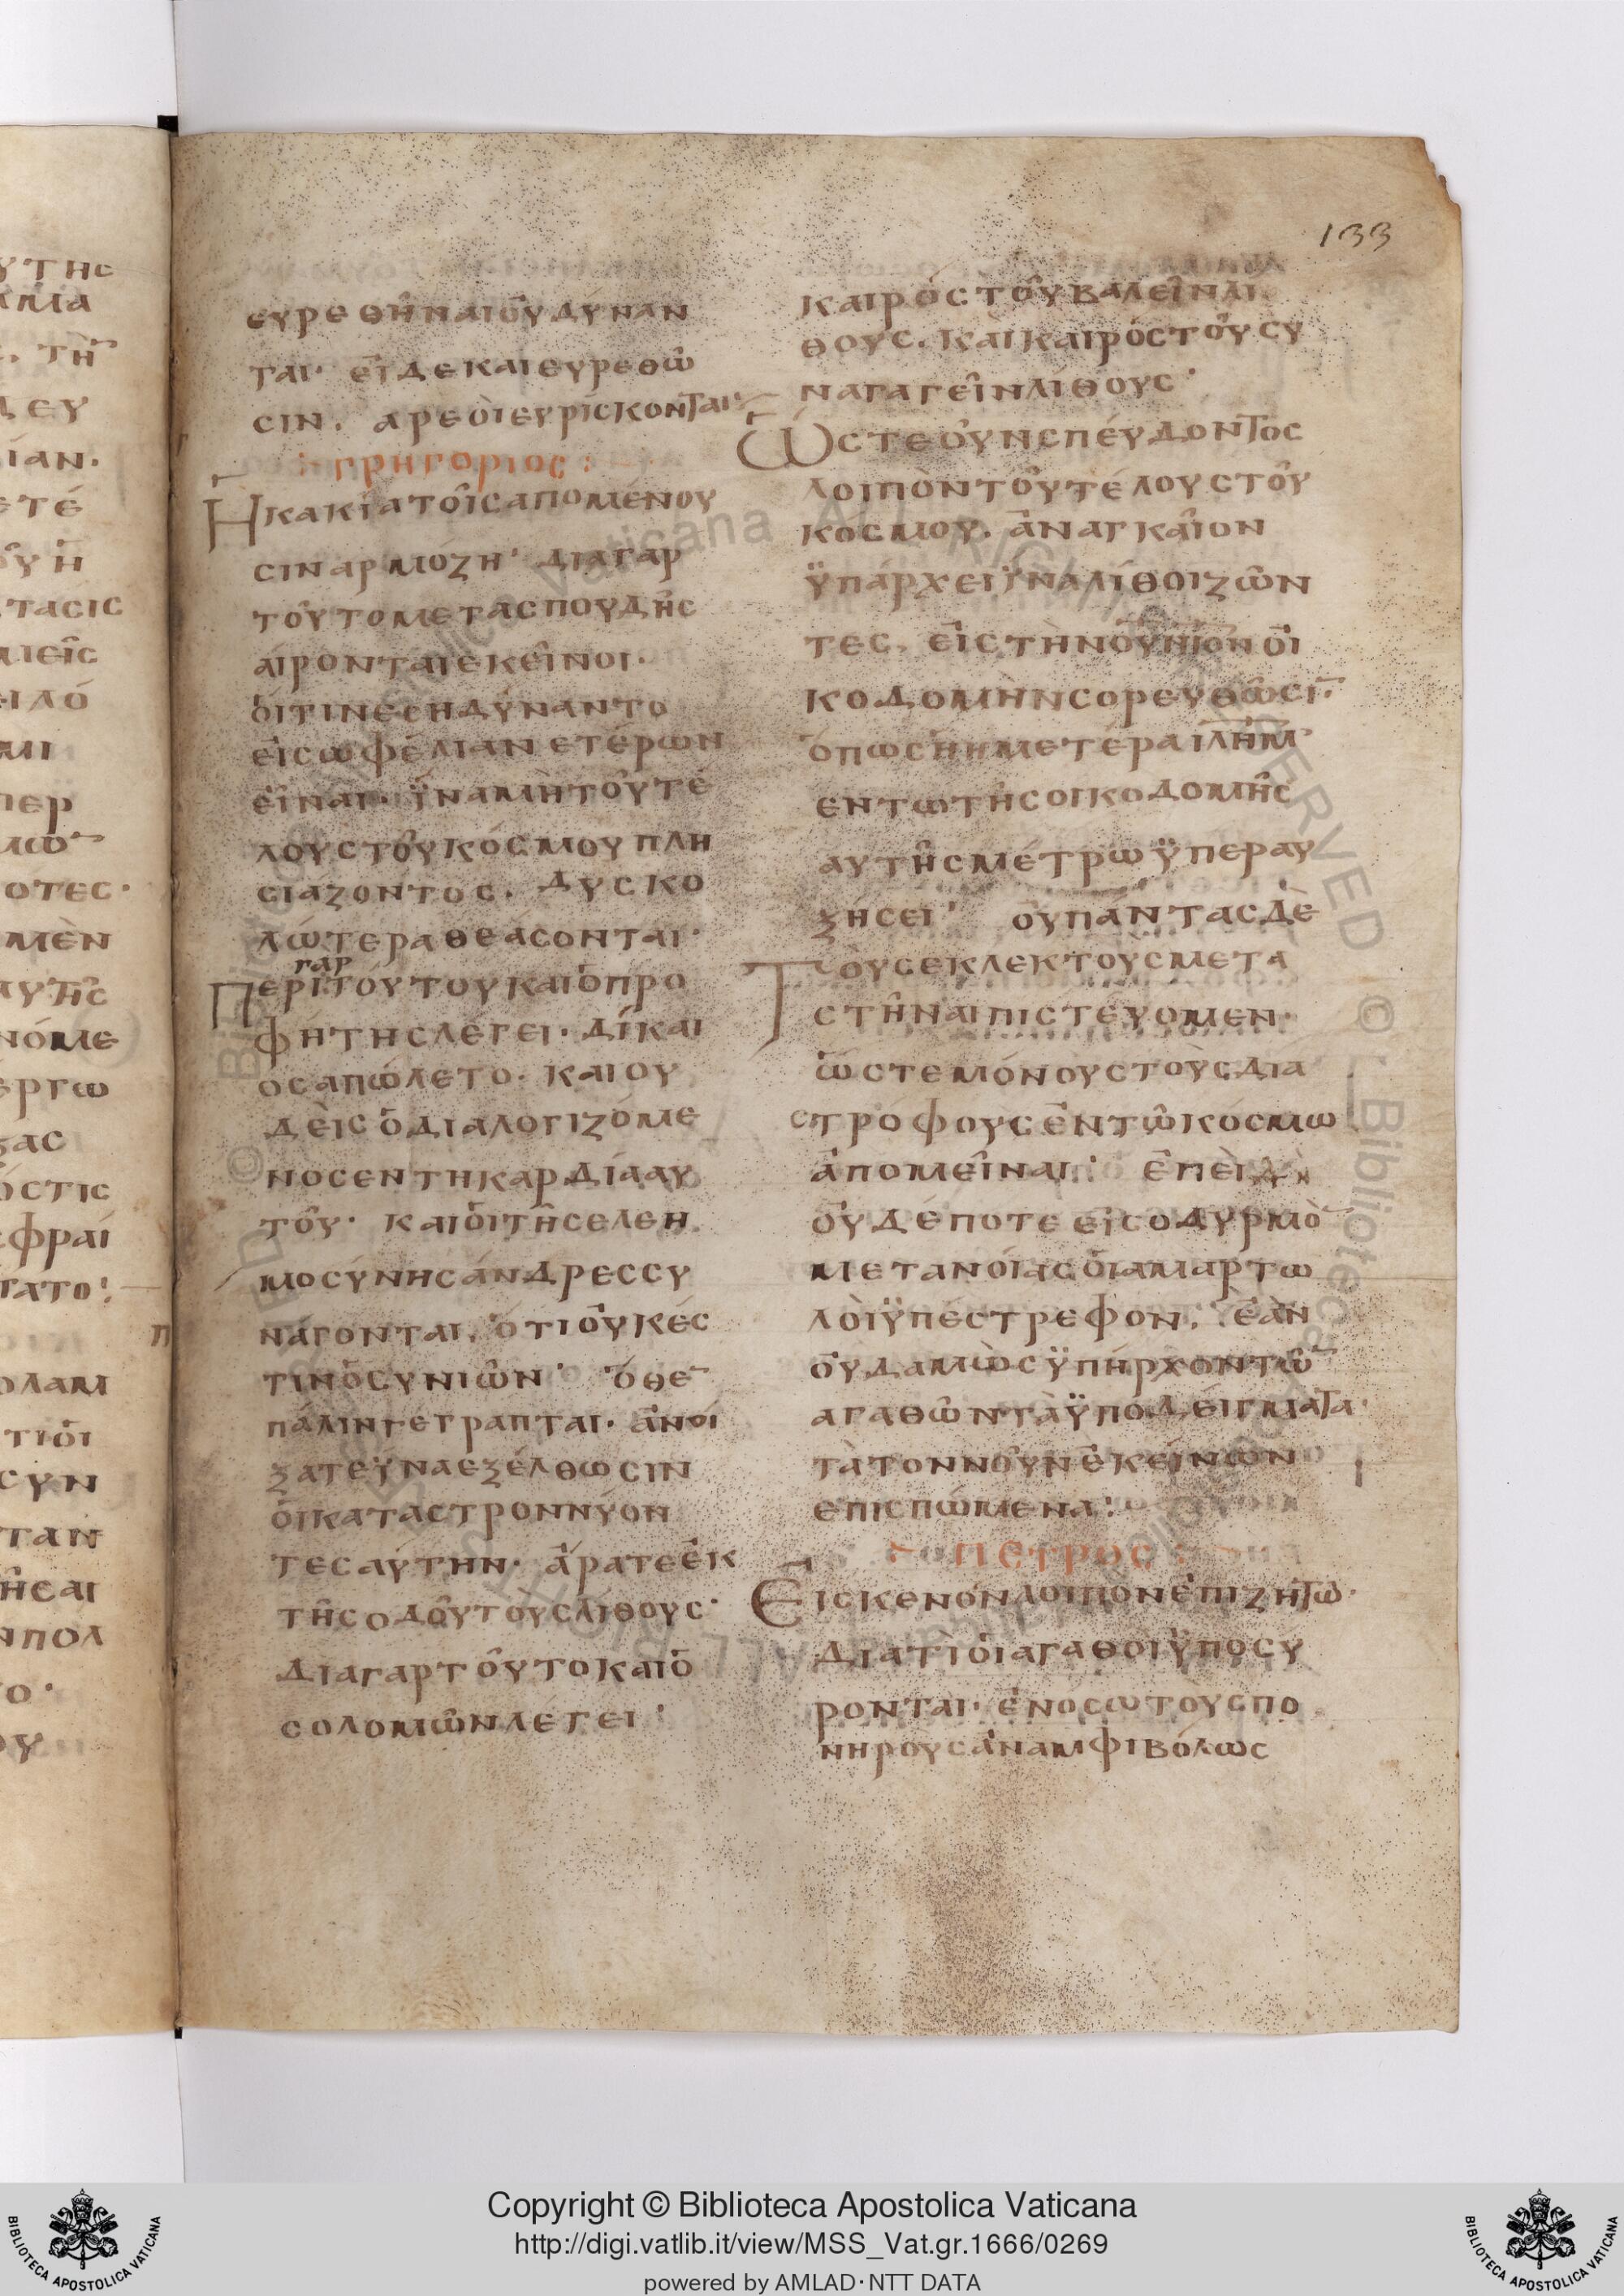 133
ευρεθῆναι οὐ δύναν
ται· εἰ δὲ και ευρεθῶ
σιν. αρεοὶ ευρίσκονται·
ΓΡΗΓΟΡΙΟΣ:
Η κακία τοῖς απομένου
σιν αρμόζη· δια γαρ
τοῦτο μετα σπουδῆς
αίρονται εκεῖνοι·
ὁίτινες ηδύναντο
εἰς ωφέλιαν ετέρων
εἶναι· ϊνα μὴ τοῦ τέ
λους τοῦ κόσμου πλη
σιάζοντος. δυσκο
λώτερα θεάσονται·
Περι γαρ τούτου και ὁ προ
φήτης λέγει· δίκαι
ος απώλετο· και ου
δεὶς ὁ διαλογιζόμε
νος εν τη καρδία αυ
τοῦ· και ὁι τῆς ελεη
μοσύνης άνδρες συ
νάγονται. ότι οὐκ έσ
τιν ὁ συνιῶν· όθε
πάλιν γεγραπται· ἀνοί
ξατε ϋνα εξέλθωσιν
ὁι καταστροννύον
τες αύτην· ἄρατε ἐκ
τῆς οδοῦ τους λίθους·
δια γαρ τοῦτο και ὁ
σολομῶν λέγει·
καιρός τοῦ βαλεῖν λι
θους. και καιρός τοῦ συ
ναγαγεῖν λίθους·
Ώστε οὖν σπέυδοντος
λοιπὸν τοῦ τέλους τοῦ
κοσμου. ἀναγκαῖον
ϋπάρχει ϊνα λίθοι ζῶν
τες. εἰς τὴν ουνιον οἰ
κοδομὴν σορευθῶσι
όπως ἡ ημετέρα ιλημ·
εν τω τῆς οικοδομῆς
αυτῆς μέτρω ϋπεραυ
ξήσει· ου πάντας δὲ
Τοὺς εκλεκτους μετα
στῆναι πιστέυομεν·
ὥστε μόνους τοὺς δια
στρόφους ἐν τῶ κόσμω
ἀπομεῖναι· ἐπεὶ
οὐδέποτε εἰς οδυρμὸ
μετανοίας ὁι αμαρτω
λὸι ϋπέστρεφον. ἐὰν
οὐδαμῶς ϋπήρχον τῶ
αγαθῶν τὰ ϋποδείγματα·
τὰ τον νοῦν ἐκείνων
επισπώμενα·
ΠΕΤΡΟΣ:
Εἰς κενὸν λοιπον ἐπιζητῶ·
δια τὶ ὁι αγαθοι ϋποσυ
ρονται· ἐν όσω τοὺς πο
νηροὺς ἀναμφιβόλως
Copyright © Biblioteca Apostolica Vaticana
http://digi.vatlib.it/view/MSS_Vat.gr.1666/0269
powered by AMLAD·NTT DATA